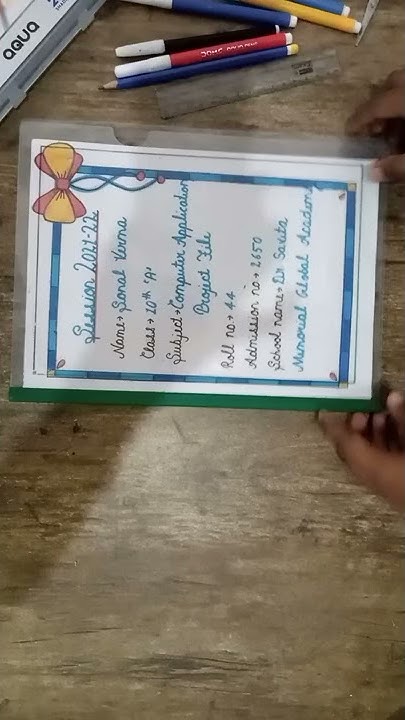 Session 2021-22
Name→ Sonal Verma
Class→ 10th 'A'
Subject→ Computer Application
Project File
Roll no→ 44
Admission no→ 2650
School name→ Dr Sarita
Memorial Global Academy
AQUA
DOMS